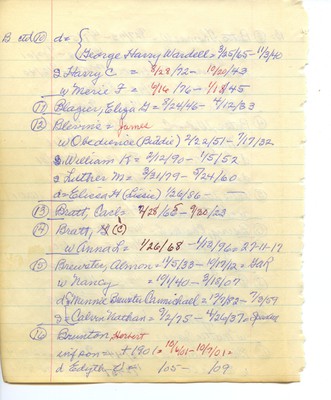 B ctd (10) d =
George Harry Wardell = 3/25/65 - 11/3/40
s Harry C = 8/28/72 - 10/20/43
w Merie F = 4/16/76 - 1/13/45
(11) Beazier, Eliza G = 7/24/46 - 4/12/33
(12) Blevins = James
w Obedience (Biddie) 2/22/51 - 7/17/32
s William K = 2/12/90 - 1/5/52
s Luther M = 3/31/79 - 8/24/60
d = Elicia H (Lissie) 1/26/86 -
(13) Bratt, Carl = 2/28/65 - 9/30/23
(14) Bratt, (C)
w Anna L = 1/26/68 - 1/13/96 = 27-11-17
(15) Brewster, Almon = 4/5/33 - 10/19/12 = GaR
w Nancy = 10/1/40 - 3/15/07
d Minnie Brewster Carmichael = 1/7/83 - 7/3/59
s = Calvin Nathan = 3/2/75 - 4/26/37 =
(16) Brunton, Herbert
inf son = + 1901 = 10/6/01 - 10/7/01 =
d Edyth = /05 - /09